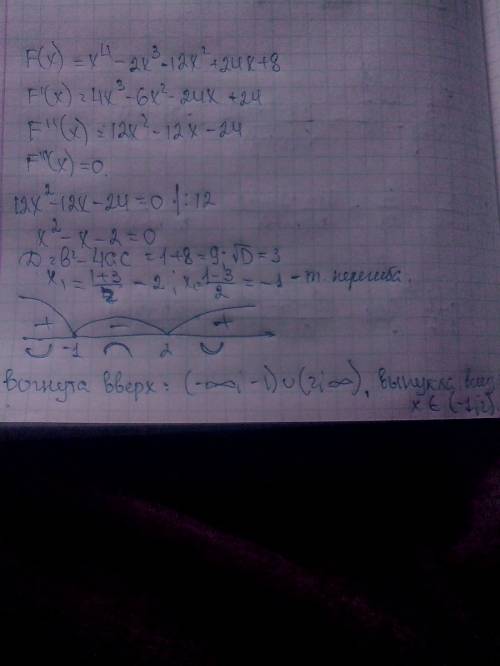 F(x) = x⁴ - 2x³ - 12x² + 24x + 8
F'(x) = 4x³ - 6x² - 24x + 24
F''(x) = 12x² - 12x - 24
F''(x) = 0.
12x² - 12x - 24 = 0 |:12
x² - x - 2 = 0
D = b² - 4ac = 1+8 = 9; √D = 3
x₁ = (1+3)/2 = 2; x₂ = (1-3)/2 = -1 - т. перегиба.
+ - +
-1 2
вогнута вверх: (-∞; -1)∪(2; ∞), выпукла
x ∈ (-1; 2)